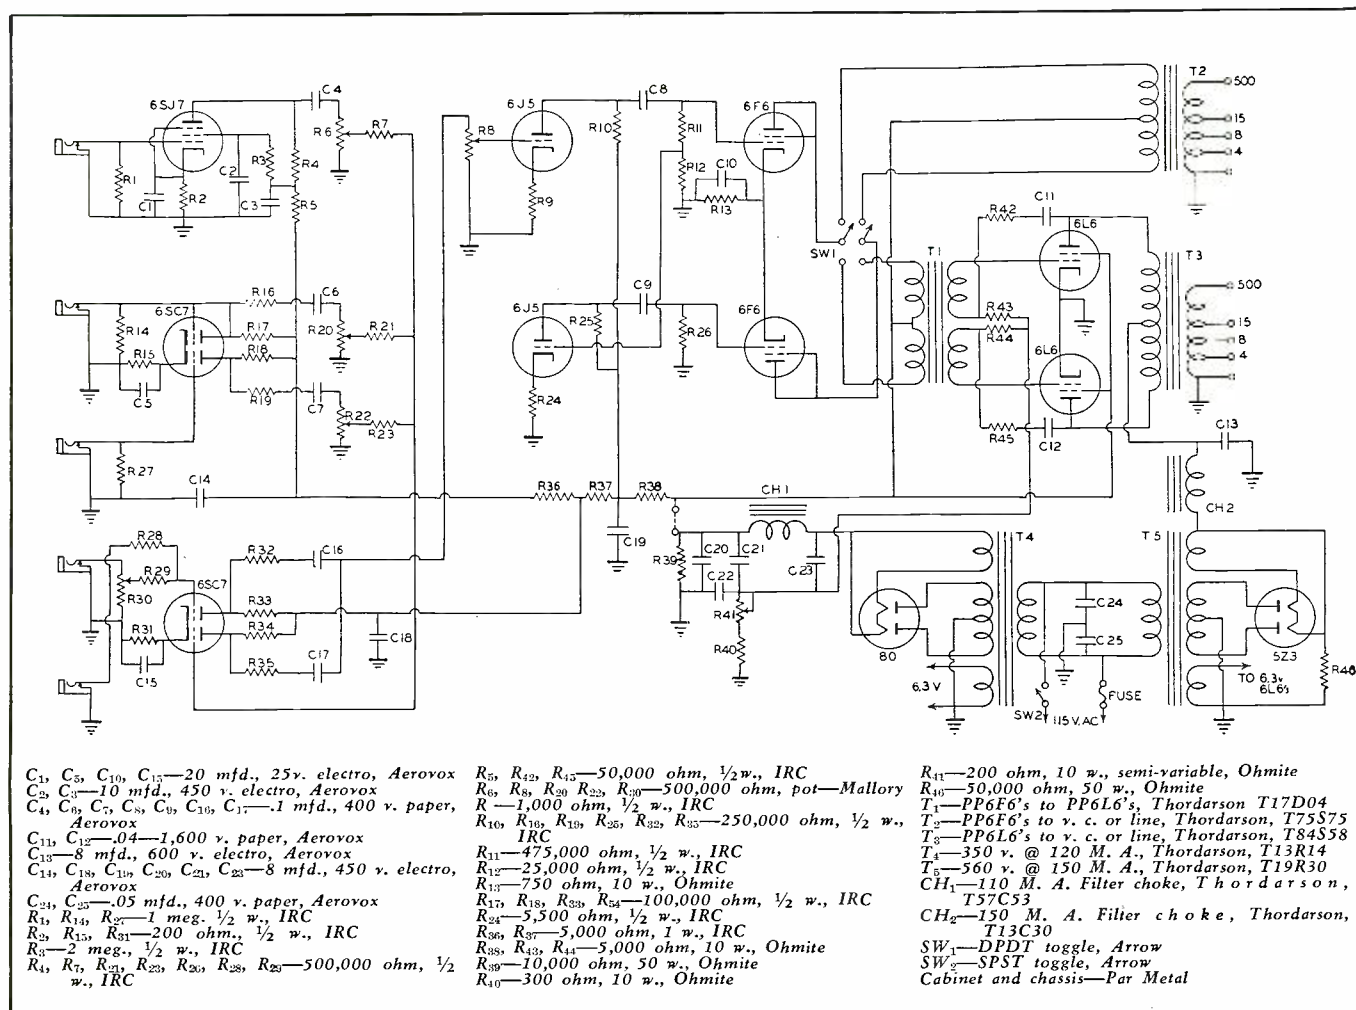 6SJ7
C4
R6
R7
R1
C1
R2
C2
R3
C3
R4
R5
R8
6J5
R9
R10
C8
R11
R12
C10
R13
6F6
SW1
T2
500
15
8
4
R42
C11
6L6
T1
R43
R44
6L6
R45
C12
T3
500
15
8
4
C13
6SC7
R14
R15
C5
R16
R17
R18
R19
C6
R20
R21
C7
R22
R23
6J5
R24
R25
C9
R26
6F6
R27
C14
R36
R37
R38
C19
CH1
CH2
R28
R29
R30
R31
C15
6SC7
R32
R33
R34
R35
C16
C17
C18
R39
C20
C21
C22
C23
R41
R40
80
6.3V
T4
SW2
115 V. AC
FUSE
C24
C25
T5
5Z3
TO 6.3v
6L6s
R46
C1, C5, C10, C15—20 mfd., 25v. electro, Aerovox
C2, C3—10 mfd., 450 v. electro, Aerovox
C4, C6, C7, C8, C9, C16, C17—.1 mfd., 400 v. paper,
Aerovox
C11, C12—.04—1,600 v. paper, Aerovox
C13—8 mfd., 600 v. electro, Aerovox
C14, C18, C19, C20, C21, C23—8 mfd., 450 v. electro,
Aerovox
C24, C25—.05 mfd., 400 v. paper, Aerovox
R1, R14, R27—1 meg. ½ w., IRC
R2, R15, R31—200 ohm., ½ w., IRC
R3—2 meg., ½ w., IRC
R4, R7, R21, R23, R26, R28, R29—500,000 ohm, ½
w., IRC
R5, R42, R45—50,000 ohm, ½w., IRC
R6, R8, R20 R22, R30—500,000 ohm, pot—Mallory
R —1,000 ohm, ½ w., IRC
R10, R16, R19, R25, R32, R35—250,000 ohm, ½ w.,
IRC
R11—475,000 ohm, ½ w., IRC
R12—25,000 ohm, ½ w., IRC
R13—750 ohm, 10 w., Ohmite
R17, R18, R33, R34—100,000 ohm, ½ w., IRC
R24—5,500 ohm, ½ w., IRC
R36, R37—5,000 ohm, 1 w., IRC
R38, R43, R44—5,000 ohm, 10 w., Ohmite
R39—10,000 ohm, 50 w., Ohmite
R40—300 ohm, 10 w., Ohmite
R41—200 ohm, 10 w., semi-variable, Ohmite
R46—50,000 ohm, 50 w., Ohmite
T1—PP6F6's to PP6L6's, Thordarson T17D04
T2—PP6F6's to v. c. or line, Thordarson, T75S75
T3—PP6L6's to v. c. or line, Thordarson, T84S58
T4—350 v. @ 120 M. A., Thordarson, T13R14
T5—560 v. @ 150 M. A., Thordarson, T19R30
CH1—110 M. A. Filter choke, Thordarson,
T57C53
CH2—150 M. A. Filter choke, Thordarson,
T13C30
SW1—DPDT toggle, Arrow
SW2—SPST toggle, Arrow
Cabinet and chassis—Par Metal